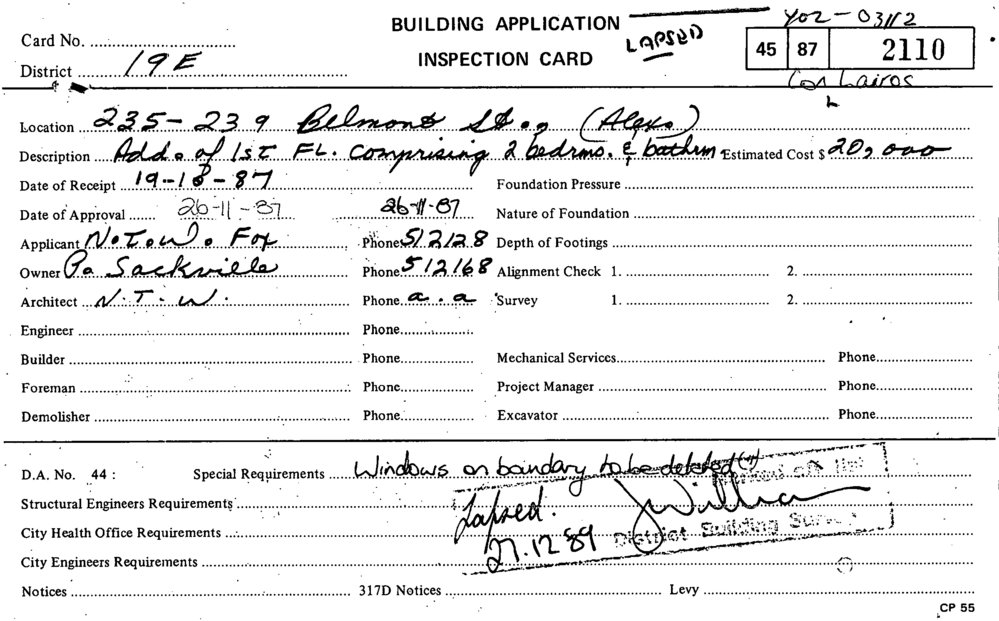 BUILDING APPLICATION
INSPECTION CARD
LAPSED
Y02-03112
45 87 2110
Cnr Cairos
Card No.
District 19E
Location 235-239 Belmont St., (Alex.)
Description Add. of 1st FL. comprising 2 bedrms. & bathrm Estimated Cost $ 20,000
Date of Receipt 19-10-87 Foundation Pressure
Date of Approval 26-11-87 26-11-87 Nature of Foundation
Applicant N.T.W. Fox Phone 512128 Depth of Footings
Owner P. Sackville Phone 512168 Alignment Check 1. 2.
Architect N.T.W. Phone a.a Survey 1. 2.
Engineer Phone
Builder Phone Mechanical Services Phone
Foreman Phone Project Manager Phone
Demolisher Phone Excavator Phone
D.A. No. 44: Special Requirements Windows on boundary to be deleted (4)
Structural Engineers Requirements Lapsed.
City Health Office Requirements 27.12.89 District Building Surveyor
City Engineers Requirements
Notices 317D Notices Levy
CP 55